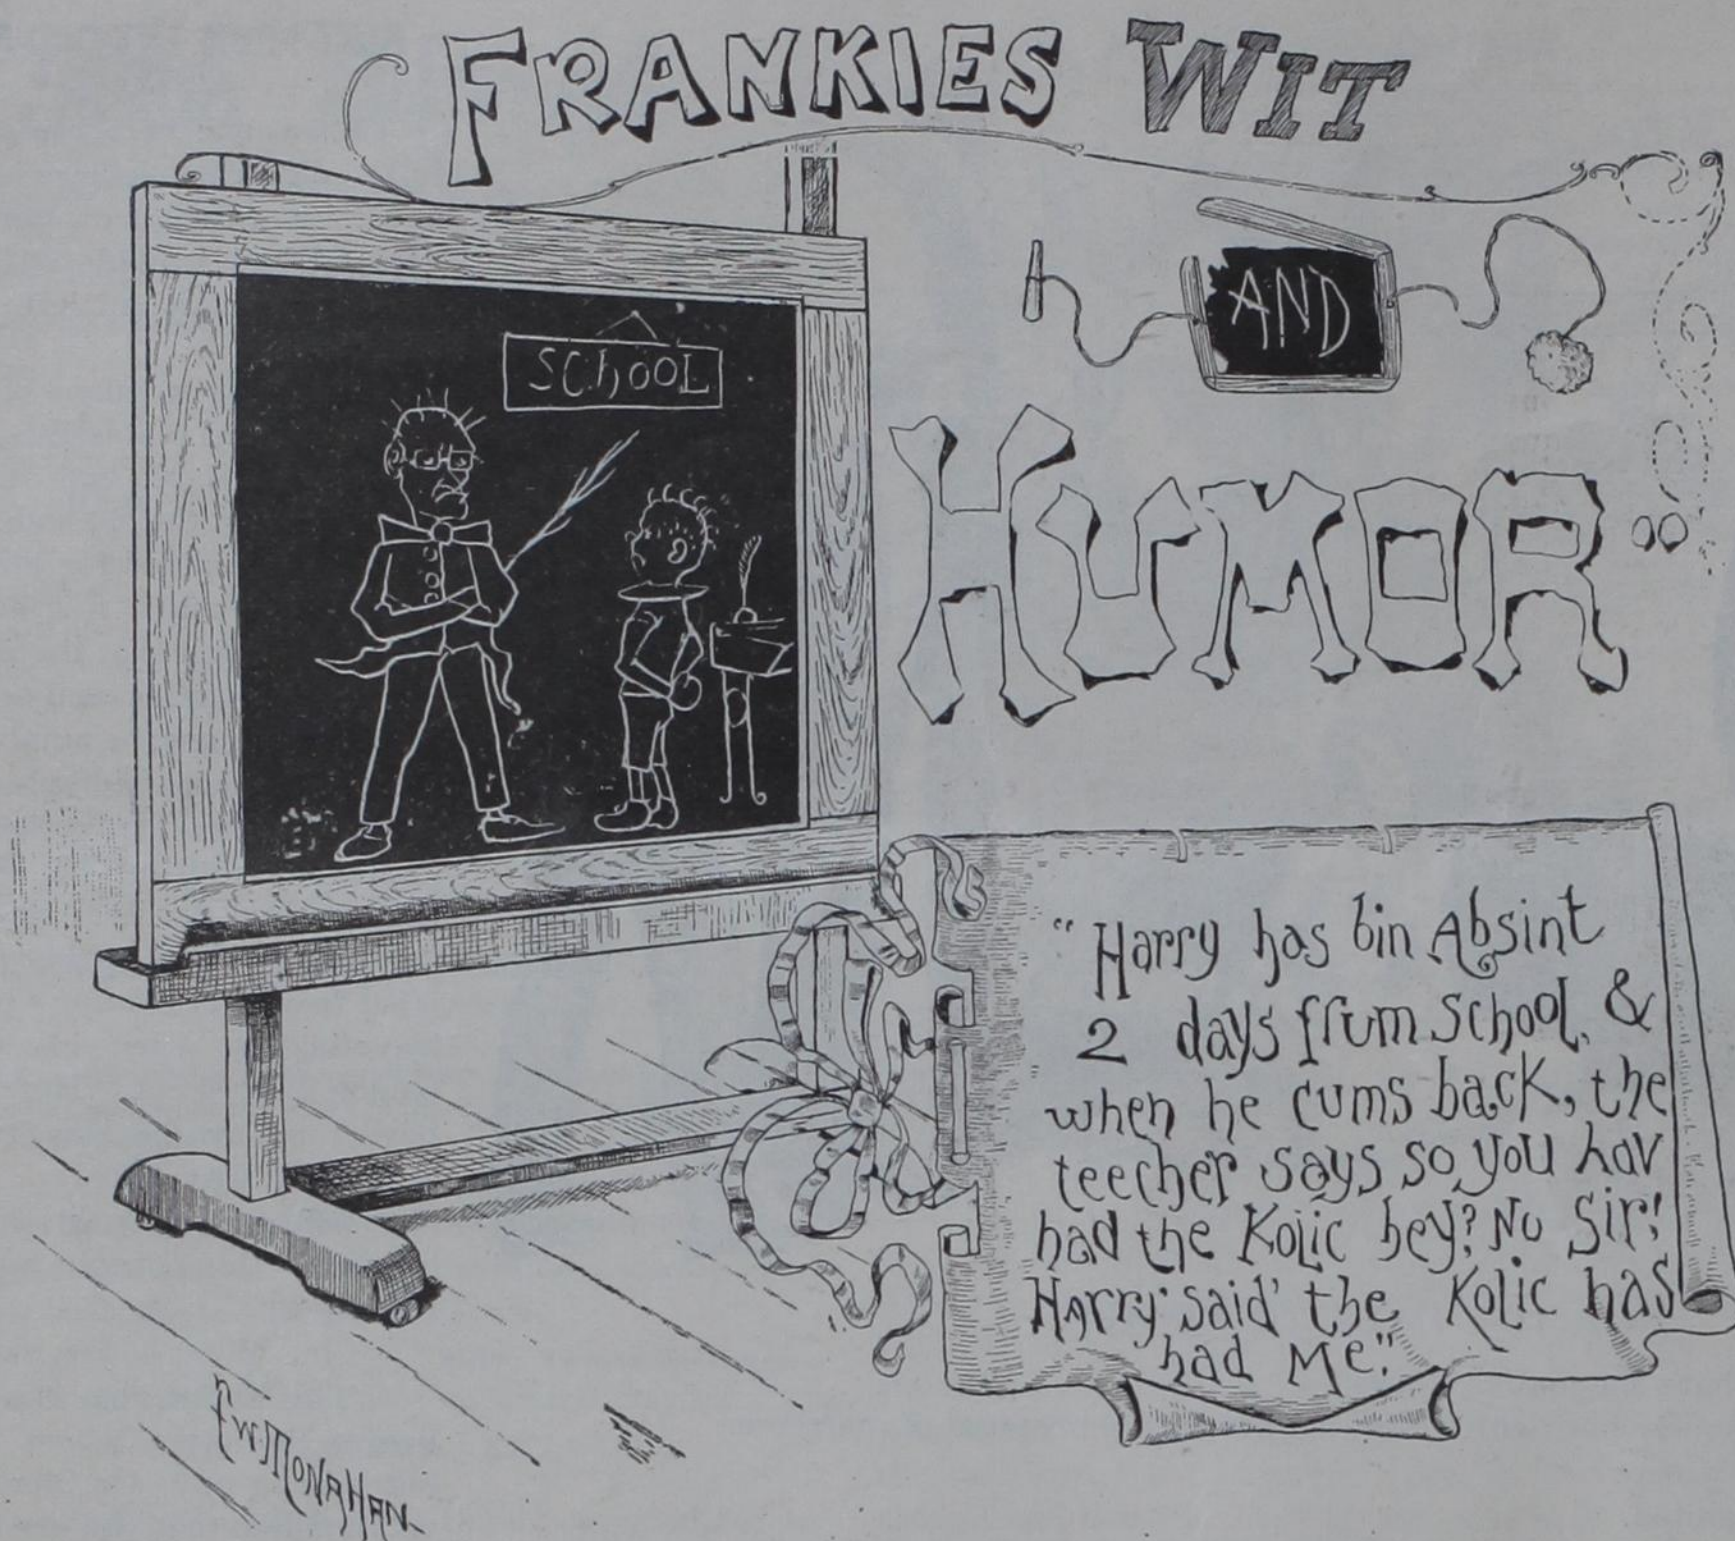 FRANKIES WIT
AND
HUMOR
SChOOL
"Harry has bin Absint
2 days frum School, &
when he cums back, the
teecher says so you hav
had the Kolic hey? No Sir!
Harry said' the Kolic has
had Me."
F.W. MONAHAN